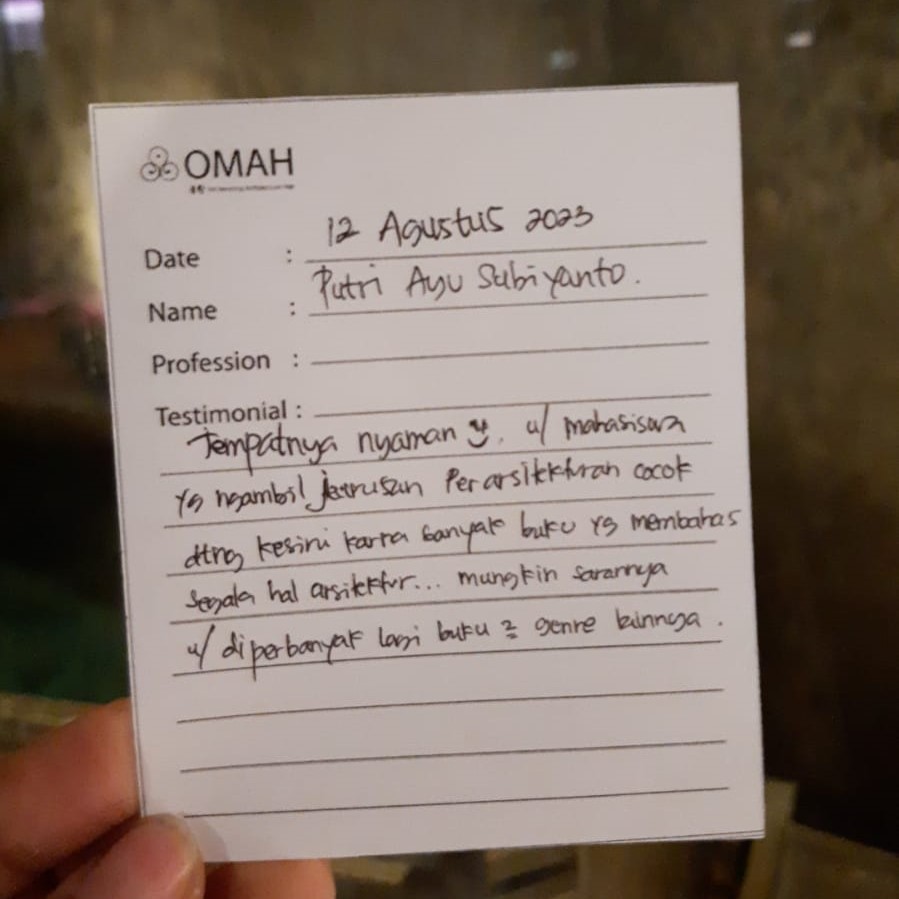 OMAH
Date : 12 Agustus 2023
Name : Putri Ayu Subiyanto.
Profession :
Testimonial :
Tempatnya nyaman u/ mahasiswa
yg ngambil jurusan Perarsitekturan cocok
dtng kesini karna banyak buku yg membahas
Segala hal arsitektur... mungkin sarannya
u/ diperbanyak lagi buku 2 genre lainnya.